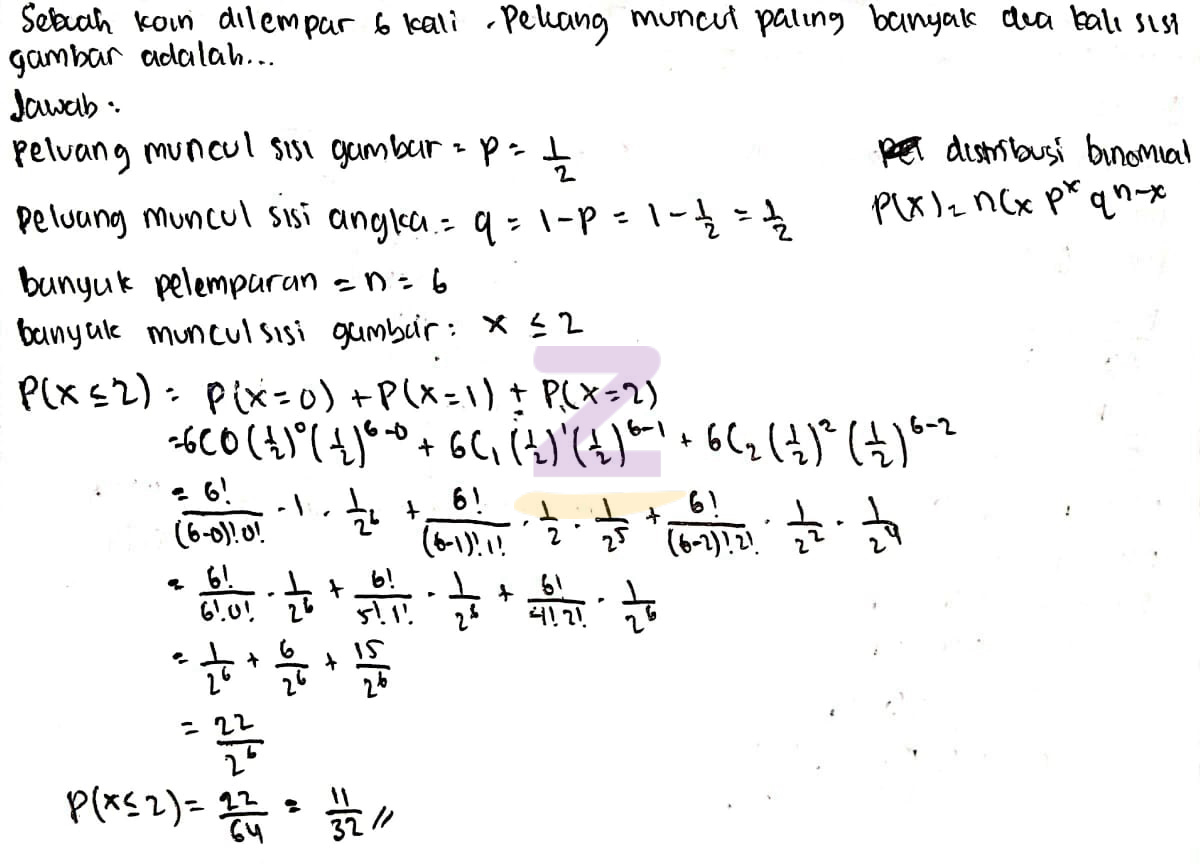 Sebuah koin dilempar 6 kali. Peluang muncul paling banyak dua kali sisi
gambar adalah...
Jawab :
peluang muncul sisi gambar = p = 1/2
distribusi binomial
peluang muncul sisi angka = q = 1-p = 1 - 1/2 = 1/2
P(x) = nCx p^x q^n-x
banyak pelemparan = n = 6
banyak muncul sisi gambar : x ≤ 2
P(x ≤ 2) = P(x=0) + P(x=1) + P(x=2)
= 6C0 (1/2)^0 (1/2)^6-0 + 6C1 (1/2)^1 (1/2)^6-1 + 6C2 (1/2)^2 (1/2)^6-2
= 6!/(6-0)!0! · 1 · 1/2^6 + 6!/(6-1)!1! · 1/2 · 1/2^5 + 6!/(6-2)!2! · 1/2^2 · 1/2^4
= 6!/6!0! · 1/2^6 + 6!/5!1! · 1/2^6 + 6!/4!2! · 1/2^6
= 1/2^6 + 6/2^6 + 15/2^6
= 22/2^6
P(x≤2) = 22/64 = 11/32 //
Z